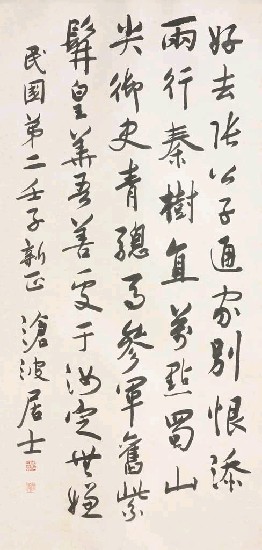 好去張公子通家別恨添
兩行秦樹直萬點蜀山
尖御史青驄馬參軍舊紫
髯皇華吾善處于汝定無嫌
民國第二壬子新正 滄波居士